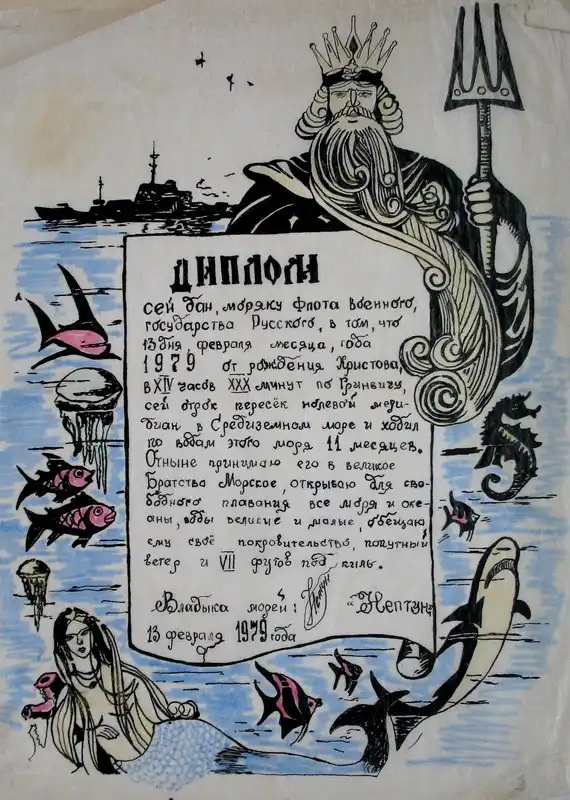 ДИПЛОМ
сей дан, моряку флота военного,
государства Русского, в том, что
13 дня, февраля месяца, года
1979 от рождения Христова,
в XIV часов XXX минут по Гринвичу,
сей отрок пересёк нолевой мери-
биан в Средиземном море и ходил
по водам этого моря 11 месяцев.
Отныне принимаю его в великое
Братство Морское, открываю для сво-
бодного плавания все моря и оке-
аны, воды великие и малые, обещаю
ему своё покровительство, попутный
ветер и VII футов под киль.
Владыка морей: Нептун "Нептун"
13 февраля 1979 года